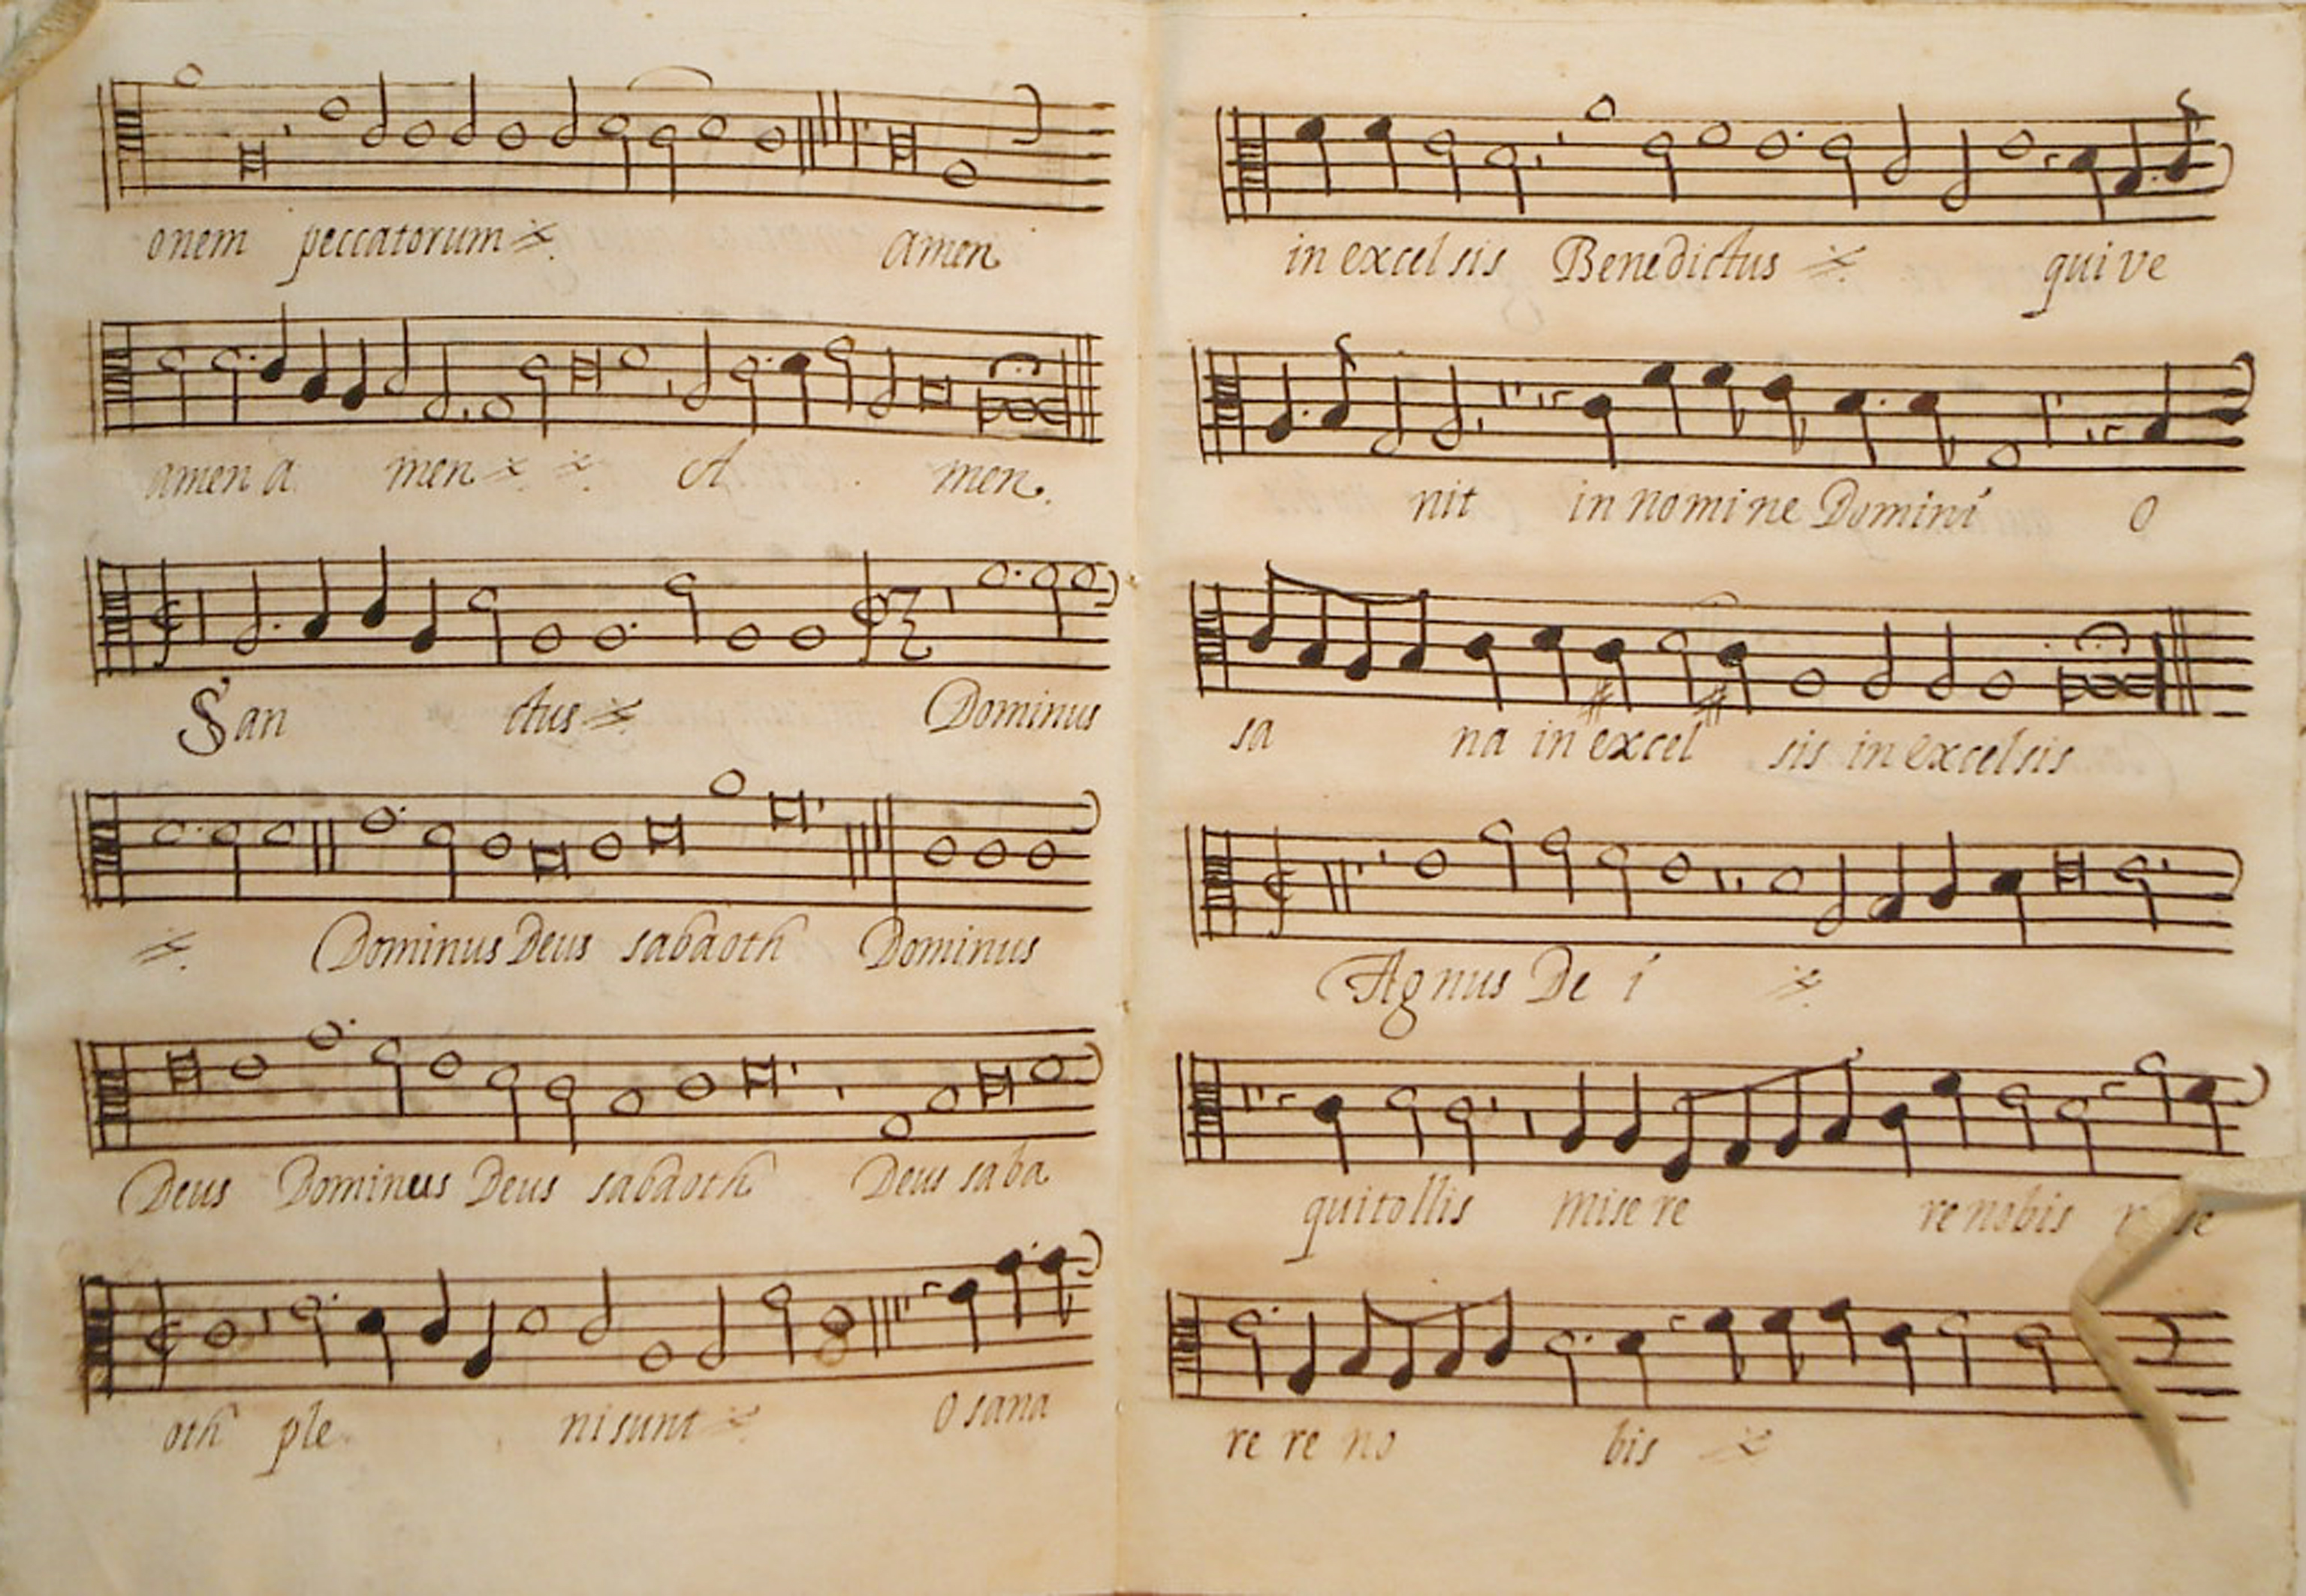 onem peccatorum amen
amen a men A men.
San ctus Dominus
Dominus Deus sabaoth Dominus
Deus Dominus Deus sabaoth Deus saba
oth ple ni sunt O sana
in excelsis Benedictus qui ve
nit in nomine Domini O
sa na in excel sis in excelsis
Agnus De i
qui tollis mise re re nobis
re re no bis